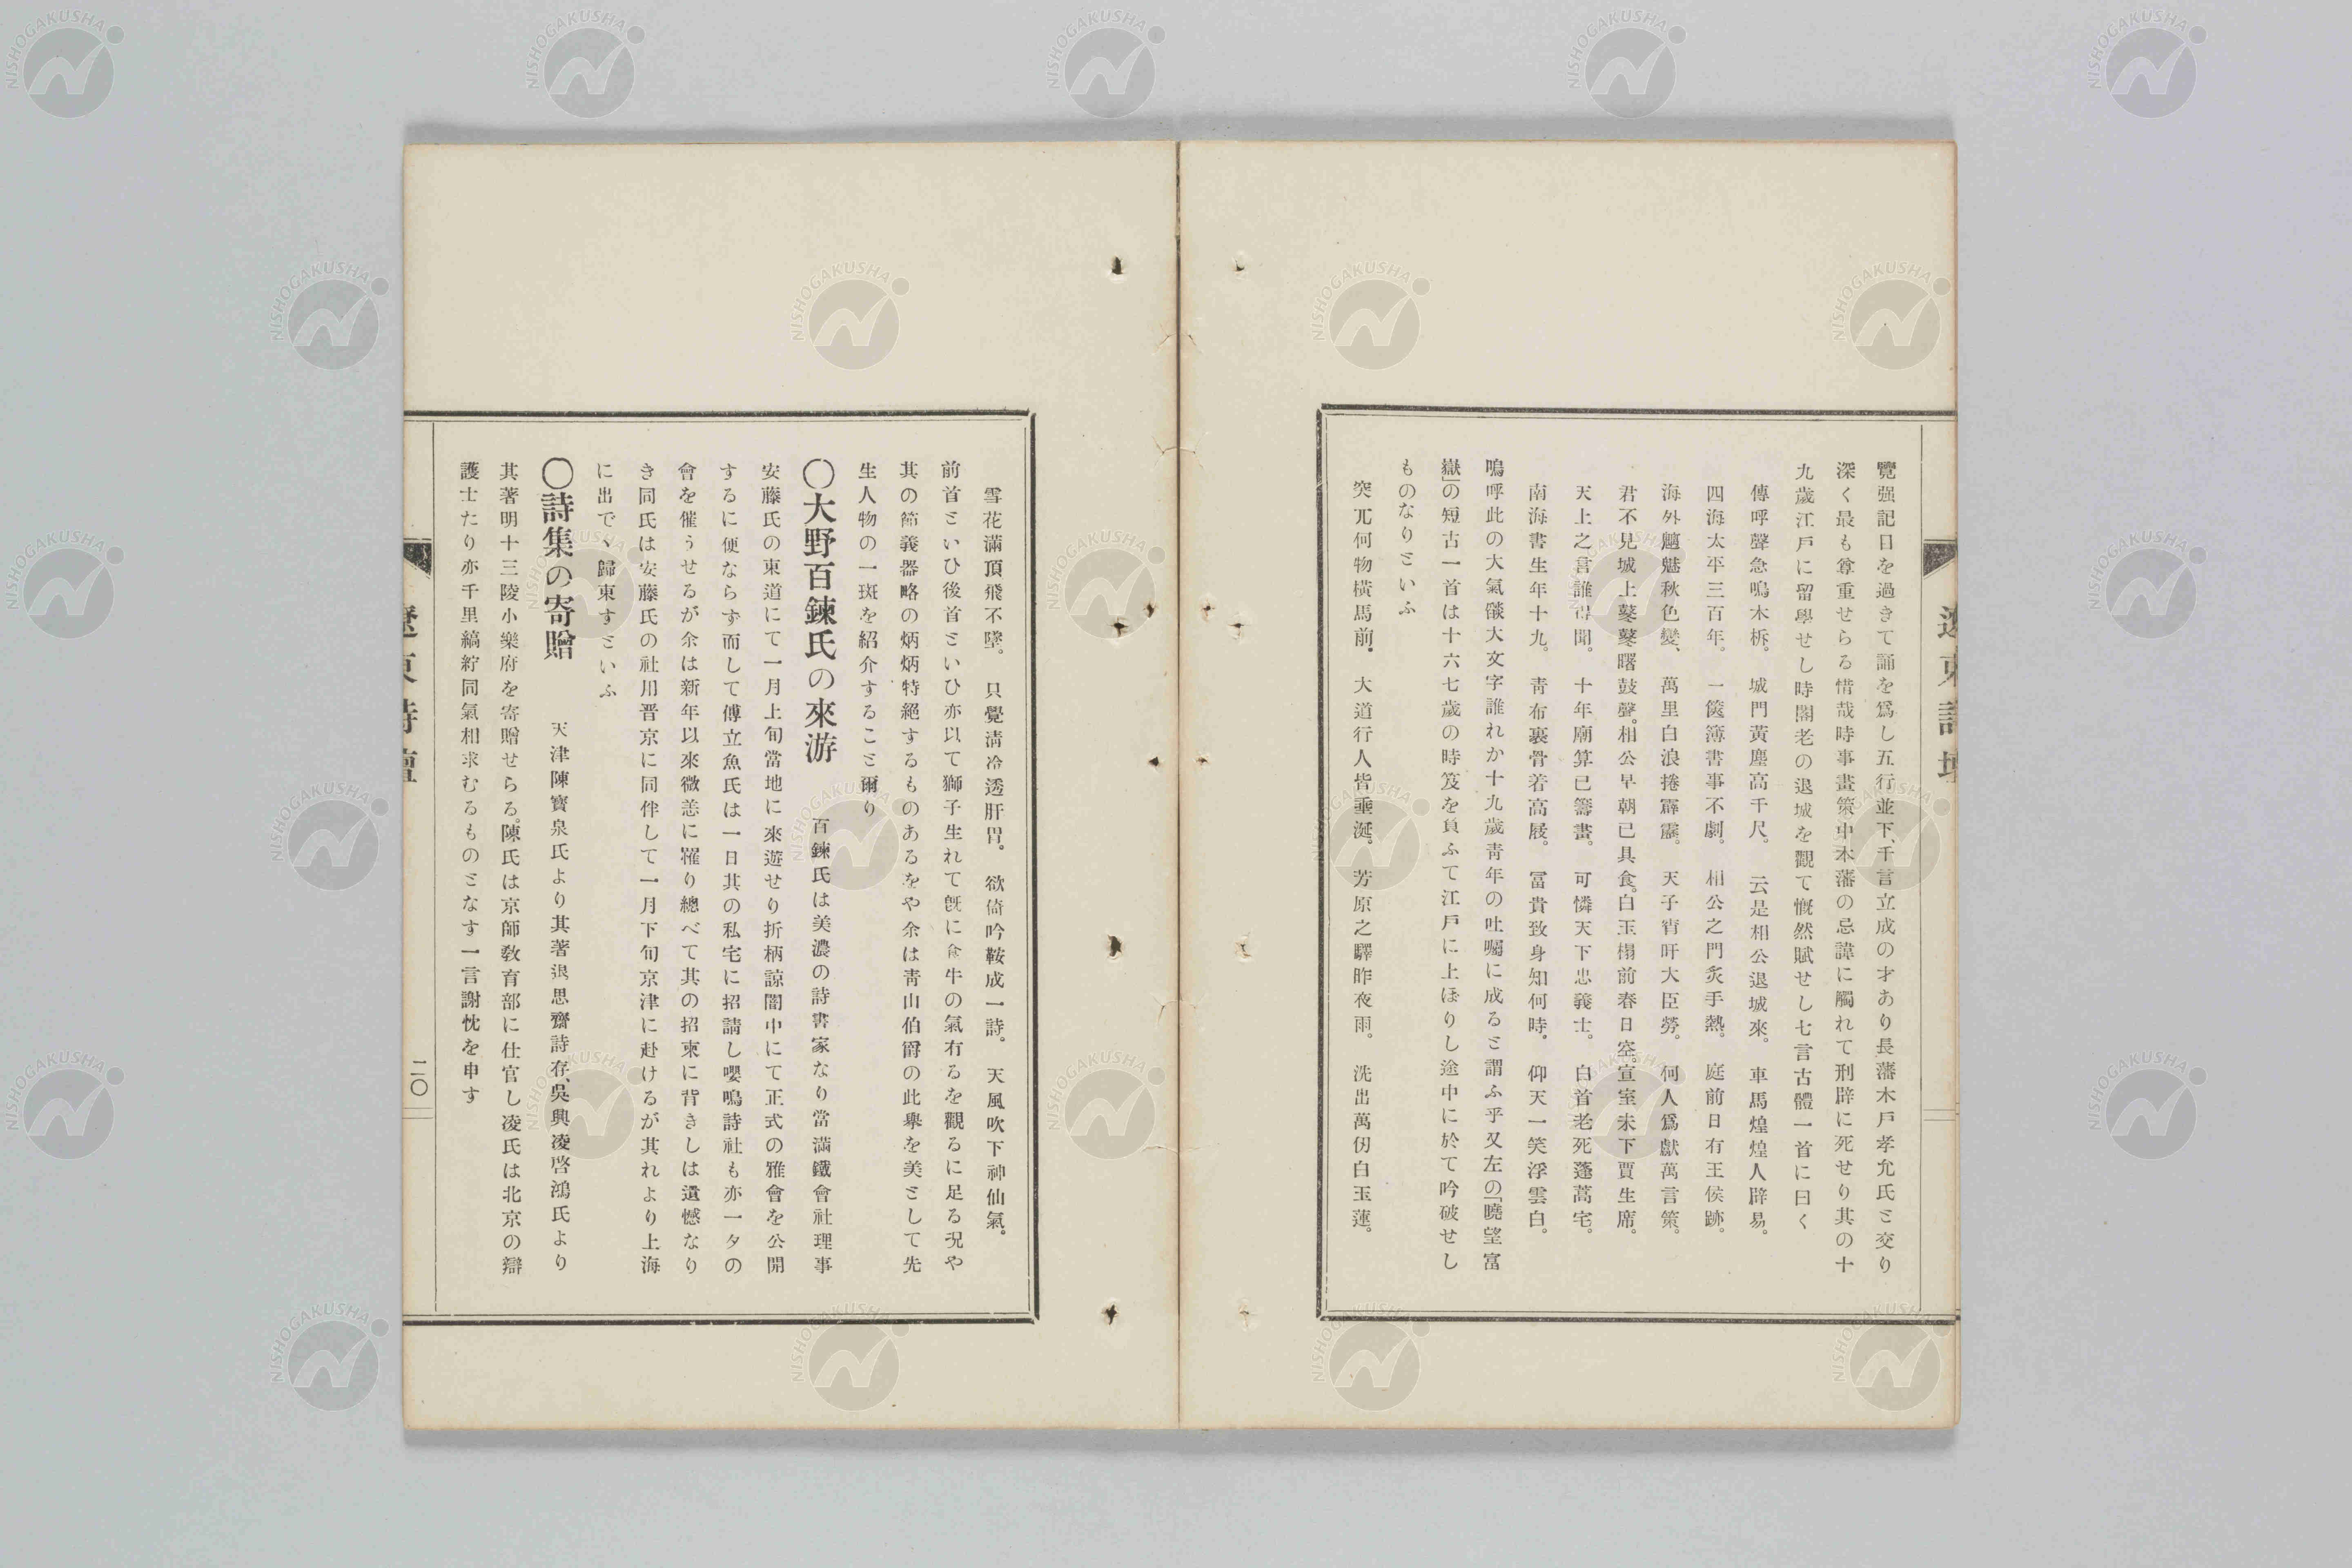 覽强記日を過きて誦を爲し五行並下、千言立成の才あり長藩木戸孝允氏と交り
深く最も尊重せらる惜哉時事畫策中本藩の忌諱に觸れて刑辟に死せり其の十
九歲江戸に留學せし時閣老の退城を觀て慨然賦せし七言古體一首に曰く
傳呼聲急鳴木柝。城門黃塵高千尺。云是相公退城來。車馬煌煌人辟易。
四海太平三百年。一篋簿書事不劇。相公之門炙手熱。庭前日有王侯跡。
海外魑魅秋色變、萬里白浪捲霹靂。天子宵旰大臣勞。何人爲獻萬言策。
君不見城上鼕鼕曙鼓聲。相公早朝已具食。白玉榻前春日空。宣室未下賈生席。
天上之言誰得聞。十年廟算已籌畫。可憐天下忠義士。白首老死蓬蒿宅。
南海書生年十九。靑布裹骨着高屐。冨貴致身知何時。仰天一笑浮雲白。
嗚呼此の大氣燄大文字誰れか十九歲靑年の吐囑に成ると謂ふ乎又左の「曉望富
嶽」の短古一首は十六七歲の時笈を負ふて江戸に上ぼりし途中に於て吟破せし
ものなりといふ
突兀何物橫馬前。大道行人皆垂涎。芳原之驛昨夜雨。洗出萬仞白玉蓮。
雪花滿頂飛不墜。只覺淸冷透肝胃。欲倚吟鞍成一詩。天風吹下神仙氣。
前首といひ後首といひ亦以て獅子生れて旣に食牛の氣有るを觀るに足る況や
其の節義器略の炳炳特絕するものあるをや余は靑山伯爵の此擧を美として先
生人物の一斑を紹介すること爾り
〇大野百鍊氏の來游 百鍊氏は美濃の詩書家なり當滿鐵會社理事
安藤氏の東道にて一月上旬當地に來遊せり折柄諒闇中にて正式の雅會を公開
するに便ならず而して傅立魚氏は一日其の私宅に招請し嚶鳴詩社も亦一夕の
會を催うせるが余は新年以來微恙に罹り總べて其の招柬に背きしは遺憾なり
き同氏は安藤氏の社用晋京に同伴して一月下旬京津に赴けるが其れより上海
に出で、歸東すといふ
〇詩集の寄贈 天津陳寶泉氏より其著退思齋詩存、吳興凌啓鴻氏より
其著明十三陵小樂府を寄贈せらる。陳氏は京師敎育部に仕官し凌氏は北京の辯
護士たり亦千里縞紵同氣相求むるものとなす一言謝忱を申す
遼東詩壇
二〇